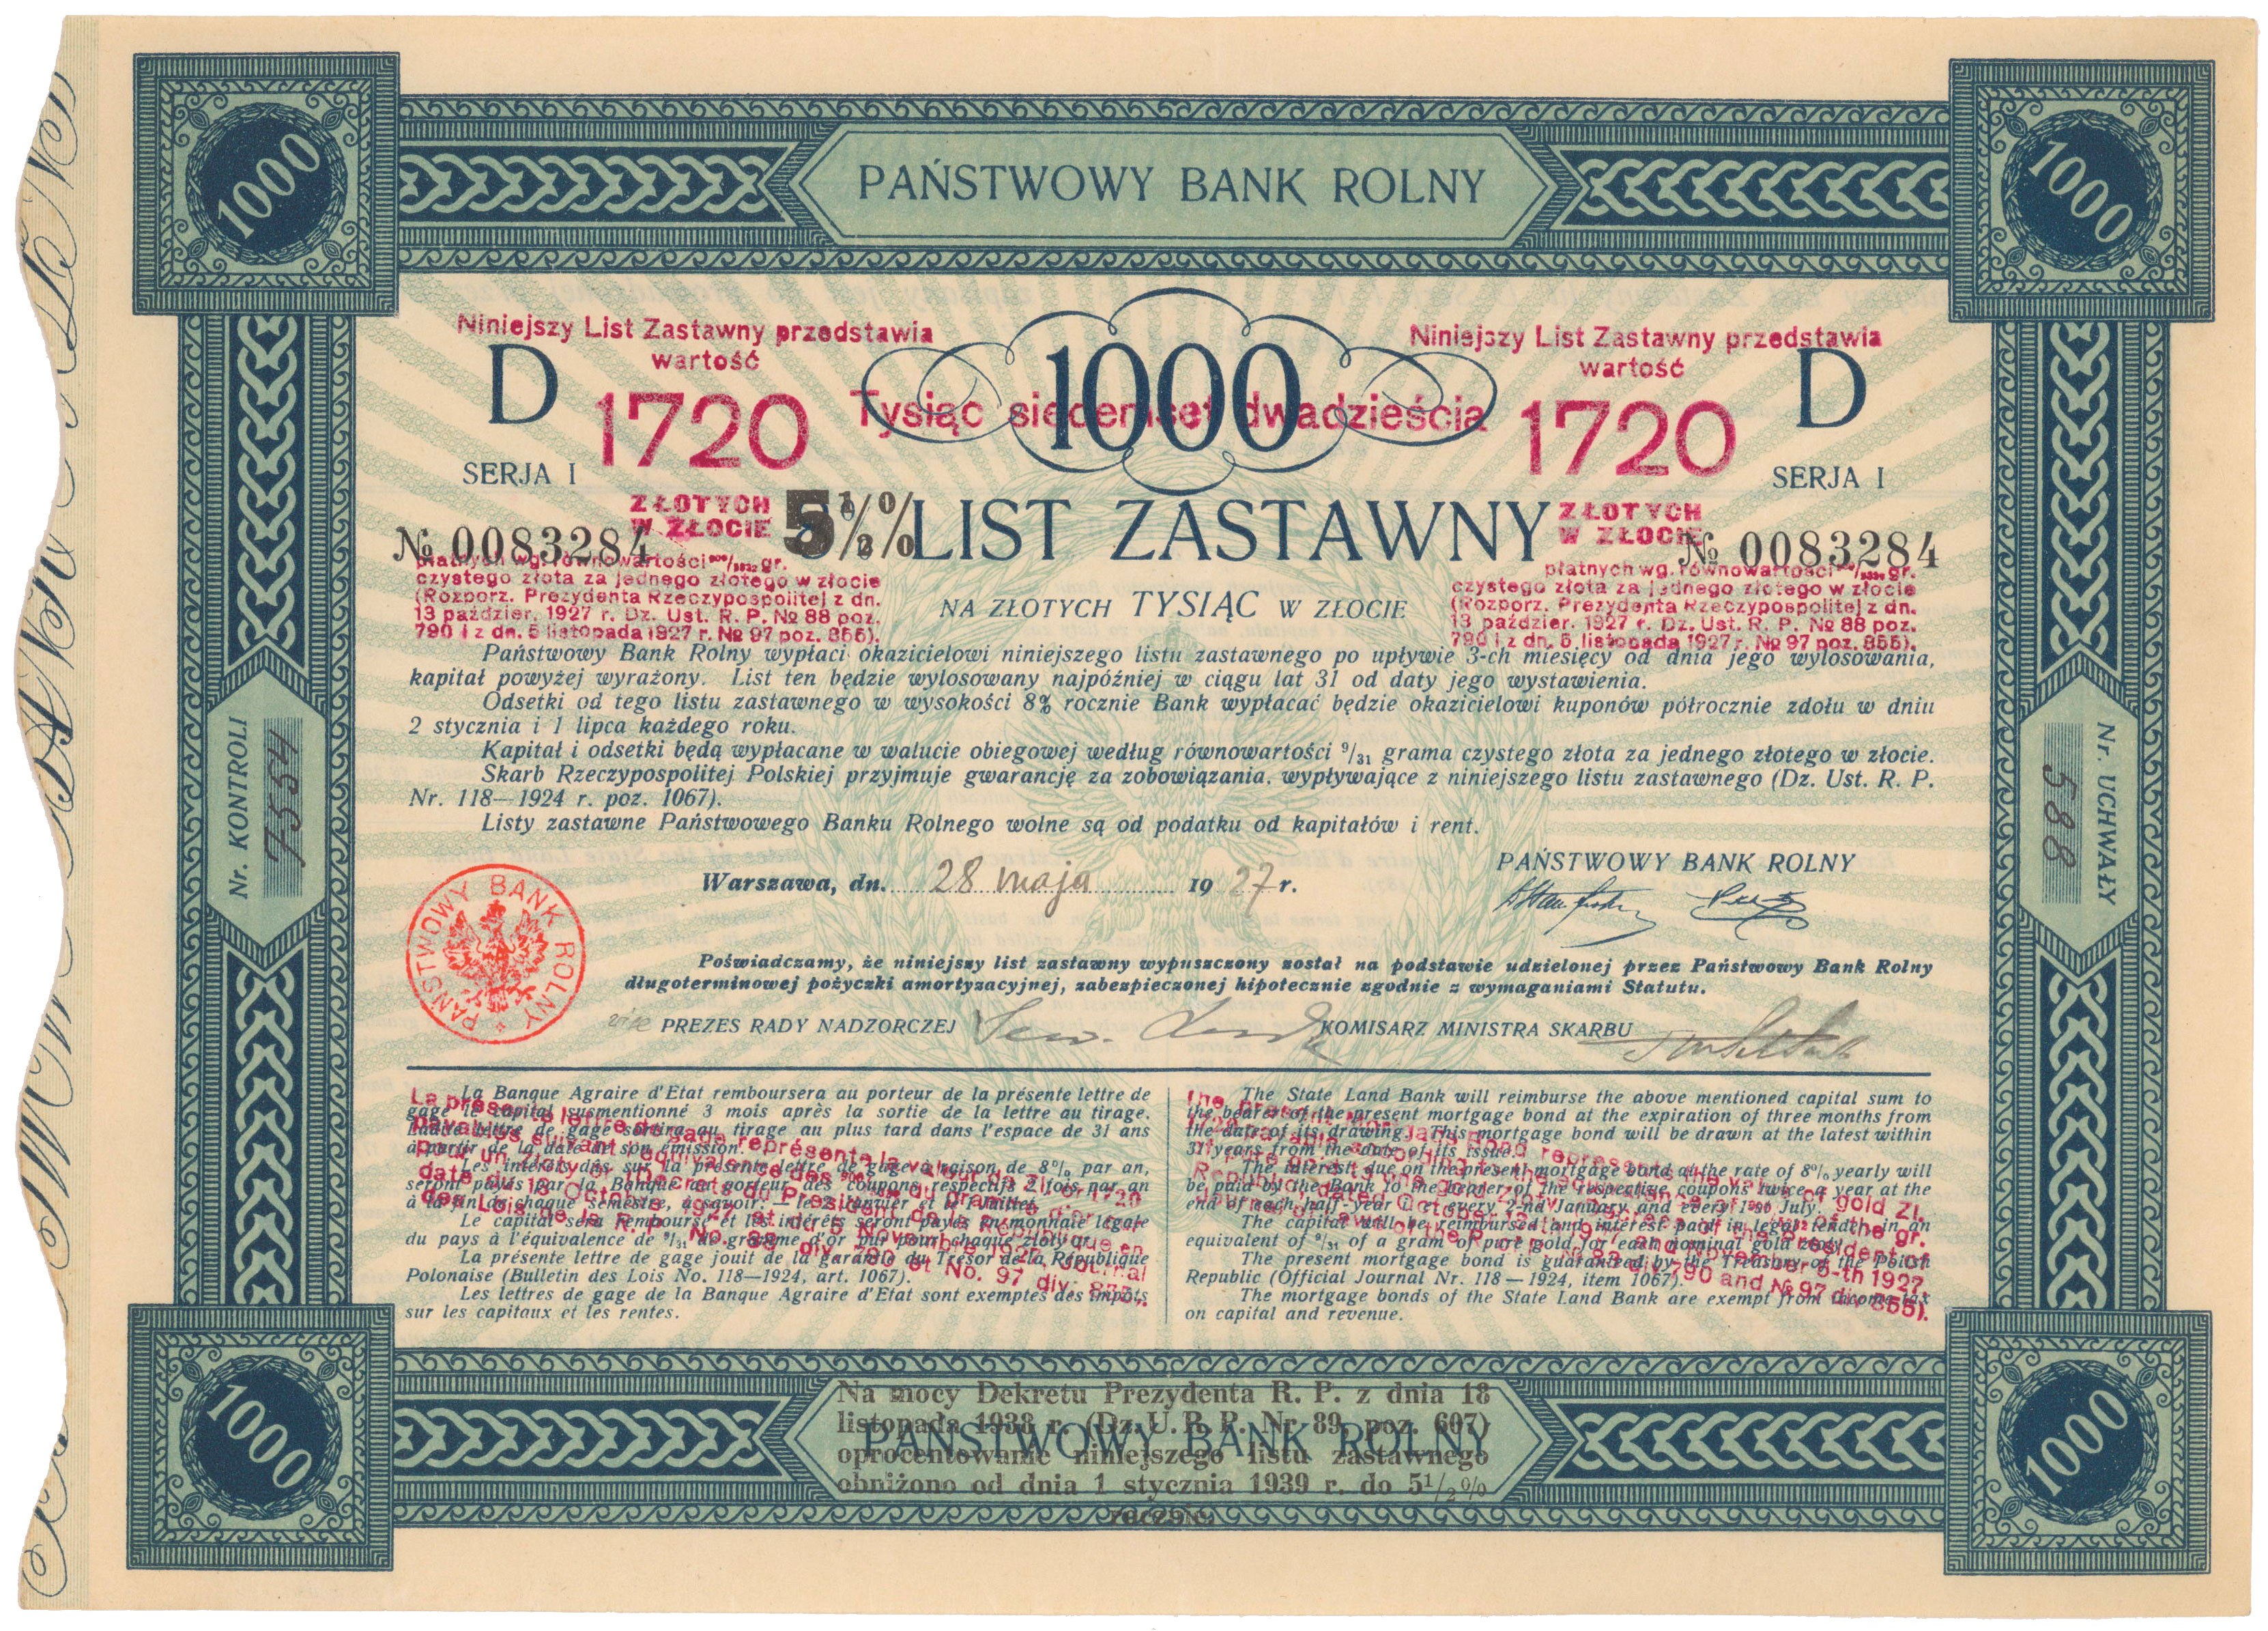 1000
PAŃSTWOWY BANK ROLNY
1000
Niniejszy List Zastawny przedstawia
wartość
Niniejszy List Zastawny przedstawia
wartość
D
1720
Tysiąc siedemset dwadzieścia
1000
1720
D
SERJA I
SERJA I
ZŁOTYCH
W ZŁOCIE
5½% LIST ZASTAWNY
ZŁOTYCH
W ZŁOCIE
№ 0083284
№ 0083284
płatnych wg. równowartości gr.
czystego złota za jednego złotego w złocie
(Rozporz. Prezydenta Rzeczypospolitej z dn.
13 paździer. 1927 r. Dz. Ust. R. P. № 88 poz.
790 i z dn. 5 listopada 1927 r. № 97 poz. 855).
płatnych wg. równowartości gr.
czystego złota za jednego złotego w złocie
(Rozporz. Prezydenta Rzeczypospolitej z dn.
13 paździer. 1927 r. Dz. Ust. R. P. № 88 poz.
790 i z dn. 5 listopada 1927 r. № 97 poz. 855).
NA ZŁOTYCH TYSIĄC W ZŁOCIE
Państwowy Bank Rolny wypłaci okazicielowi niniejszego listu zastawnego po upływie 3-ch miesięcy od dnia jego wylosowania,
kapitał powyżej wyrażony. List ten będzie wylosowany najpóźniej w ciągu lat 31 od daty jego wystawienia.
Odsetki od tego listu zastawnego w wysokości 8% rocznie Bank wypłacać będzie okazicielowi kuponów półrocznie zdołu w dniu
2 stycznia i 1 lipca każdego roku.
Kapitał i odsetki będą wypłacane w walucie obiegowej według równowartości 9/31 grama czystego złota za jednego złotego w złocie.
Skarb Rzeczypospolitej Polskiej przyjmuje gwarancję za zobowiązania, wypływające z niniejszego listu zastawnego (Dz. Ust. R. P.
Nr. 118—1924 r. poz. 1067).
Listy zastawne Państwowego Banku Rolnego wolne są od podatku od kapitałów i rent.
Nr. KONTROLI
7554
Nr. UCHWAŁY
588
Warszawa, dn. 28 maja 1927 r.
PAŃSTWOWY BANK ROLNY
PAŃSTWOWY BANK ROLNY
Poświadczamy, że niniejszy list zastawny wypuszczony został na podstawie udzielonej przez Państwowy Bank Rolny
długoterminowej pożyczki amortyzacyjnej, zabezpieczonej hipotecznie zgodnie z wymaganiami Statutu.
vice PREZES RADY NADZORCZEJ
KOMISARZ MINISTRA SKARBU
La Banque Agraire d'Etat remboursera au porteur de la présente lettre de
gage le capital susmentionné 3 mois après la sortie de la lettre au tirage.
Ladite lettre de gage sortira au tirage au plus tard dans l'espace de 31 ans
à partir de la date de son émission.
Les intérêts dûs sur la présente lettre de gage à raison de 8% par an,
seront payés par la Banque au porteur des coupons respectifs 2 fois par an
à la fin de chaque semestre, à savoir: — le 2 Janvier et le 1 Juillet.
Le capital sera remboursé et les intérêts seront payés en monnaie légale
du pays à l'équivalence de 9/31 de gramme d'or pur pour chaque zloty or.
La présente lettre de gage jouit de la garantie du Trésor de la République
Polonaise (Bulletin des Lois No. 118—1924, art. 1067).
Les lettres de gage de la Banque Agraire d'Etat sont exemptes des impôts
sur les capitaux et les rentes.
The State Land Bank will reimburse the above mentioned capital sum to
the bearer of the present mortgage bond at the expiration of three months from
the date of its drawing. This mortgage bond will be drawn at the latest within
31 years from the date of its issue.
The interest due on the present mortgage bond at the rate of 8% yearly will
be paid by the Bank to the bearer of the respective coupons twice a year at the
end of each half-year i. e. every 2-nd January and every 1-st July.
The capital will be reimbursed and interest paid in legal tender in an
equivalent of 9/31 of a gram of pure gold for each nominal gold zloty.
The present mortgage bond is guaranteed by the Treasury of the Polish
Republic (Official Journal Nr. 118 — 1924, item 1067).
The mortgage bonds of the State Land Bank are exempt from income-tax
on capital and revenue.
1000
PAŃSTWOWY BANK ROLNY
Na mocy Dekretu Prezydenta R. P. z dnia 18
listopada 1938 r. (Dz. U. R. P. Nr. 89, poz. 607)
oprocentowanie niniejszego listu zastawnego
obniżono od dnia 1 stycznia 1939 r. do 5½%
rocznie.
1000